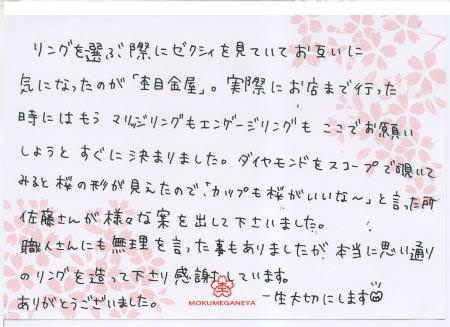 リングを選ぶ際にゼクシィを見ていてお互いに
気になったのが「杢目金屋」。実際にお店まで行った
時にはもう マリッジリングもエンゲージリングも ここでお願い
しようと すぐに決まりました。ダイヤモンドをスコープで覗いて
みると桜の形が見えたので、「カップも桜がいいな〜」と言った所
佐藤さんが様々な案を出して下さいました。
職人さんにも無理を言った事もありましたが、本当に思い通り
のリングを造って下さり感謝しています。
ありがとうございました。 一生大切にします
MOKUMEGANEYA